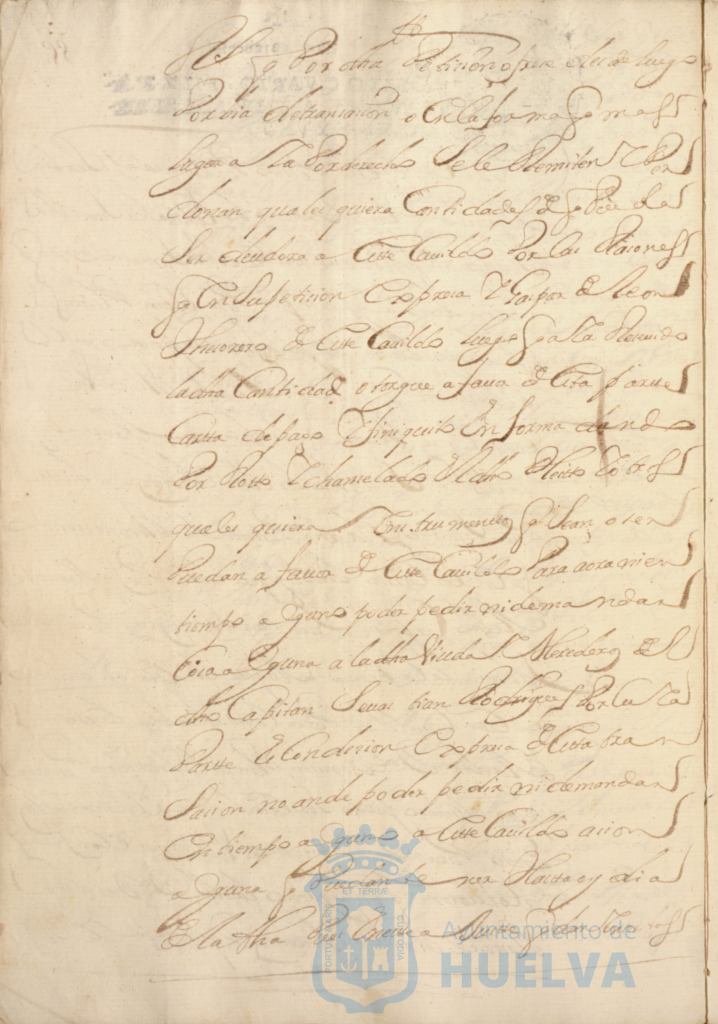 Por dha Petision ofrese desde luego
Por via de transacion o en la forma q mas
lugar aya Por derecho Se le Remiten y Per
donan quales quiera Cantidades q Pue da
Ser deudora a este Cauildo Por las Rasones
q En su petision Expresa Y Gaspar de leon
thesorero de este Cauildo luego q aya Resiuido
la dha Cantidad otorgue a fauor de esta parte
Carta de pago Y finiquito En forma dando
Por Rotto Y chanselado el dho Pleito Y otros
quales quiera Instrumentos q Sean o ser
Puedan a fauor de este Cauildo Para aora ni en
tiempo alguno poder pedir ni demandar
Cosa alguna a la dha Viuda Y Herederos del
dho Capitan Seuastian Rodrigues Por cuya
Parte Es Condision Expresa de esta tran
Sasion no an de poder pedir ni demandar
En tiempo alguno a este Cauildo asion
alguna q Puedan tener Hasta oy dia
de la fha
Ayuntamiento de
HUELVA
PORTUS MARIS
ET TERRAE
CUSTODIA